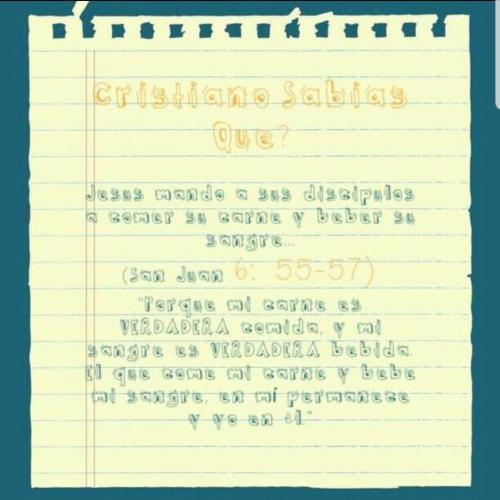 Cristiano Sabias
Que?
Jesus mando a sus discipulos
a comer su carne y beber su
sangre...
(San Juan 6: 55-57)
"Porque mi carne es
VERDADERA comida, y mi
sangre es VERDADERA bebida.
El que come mi carne y bebe
mi sangre, en mí permanece
y yo en él."